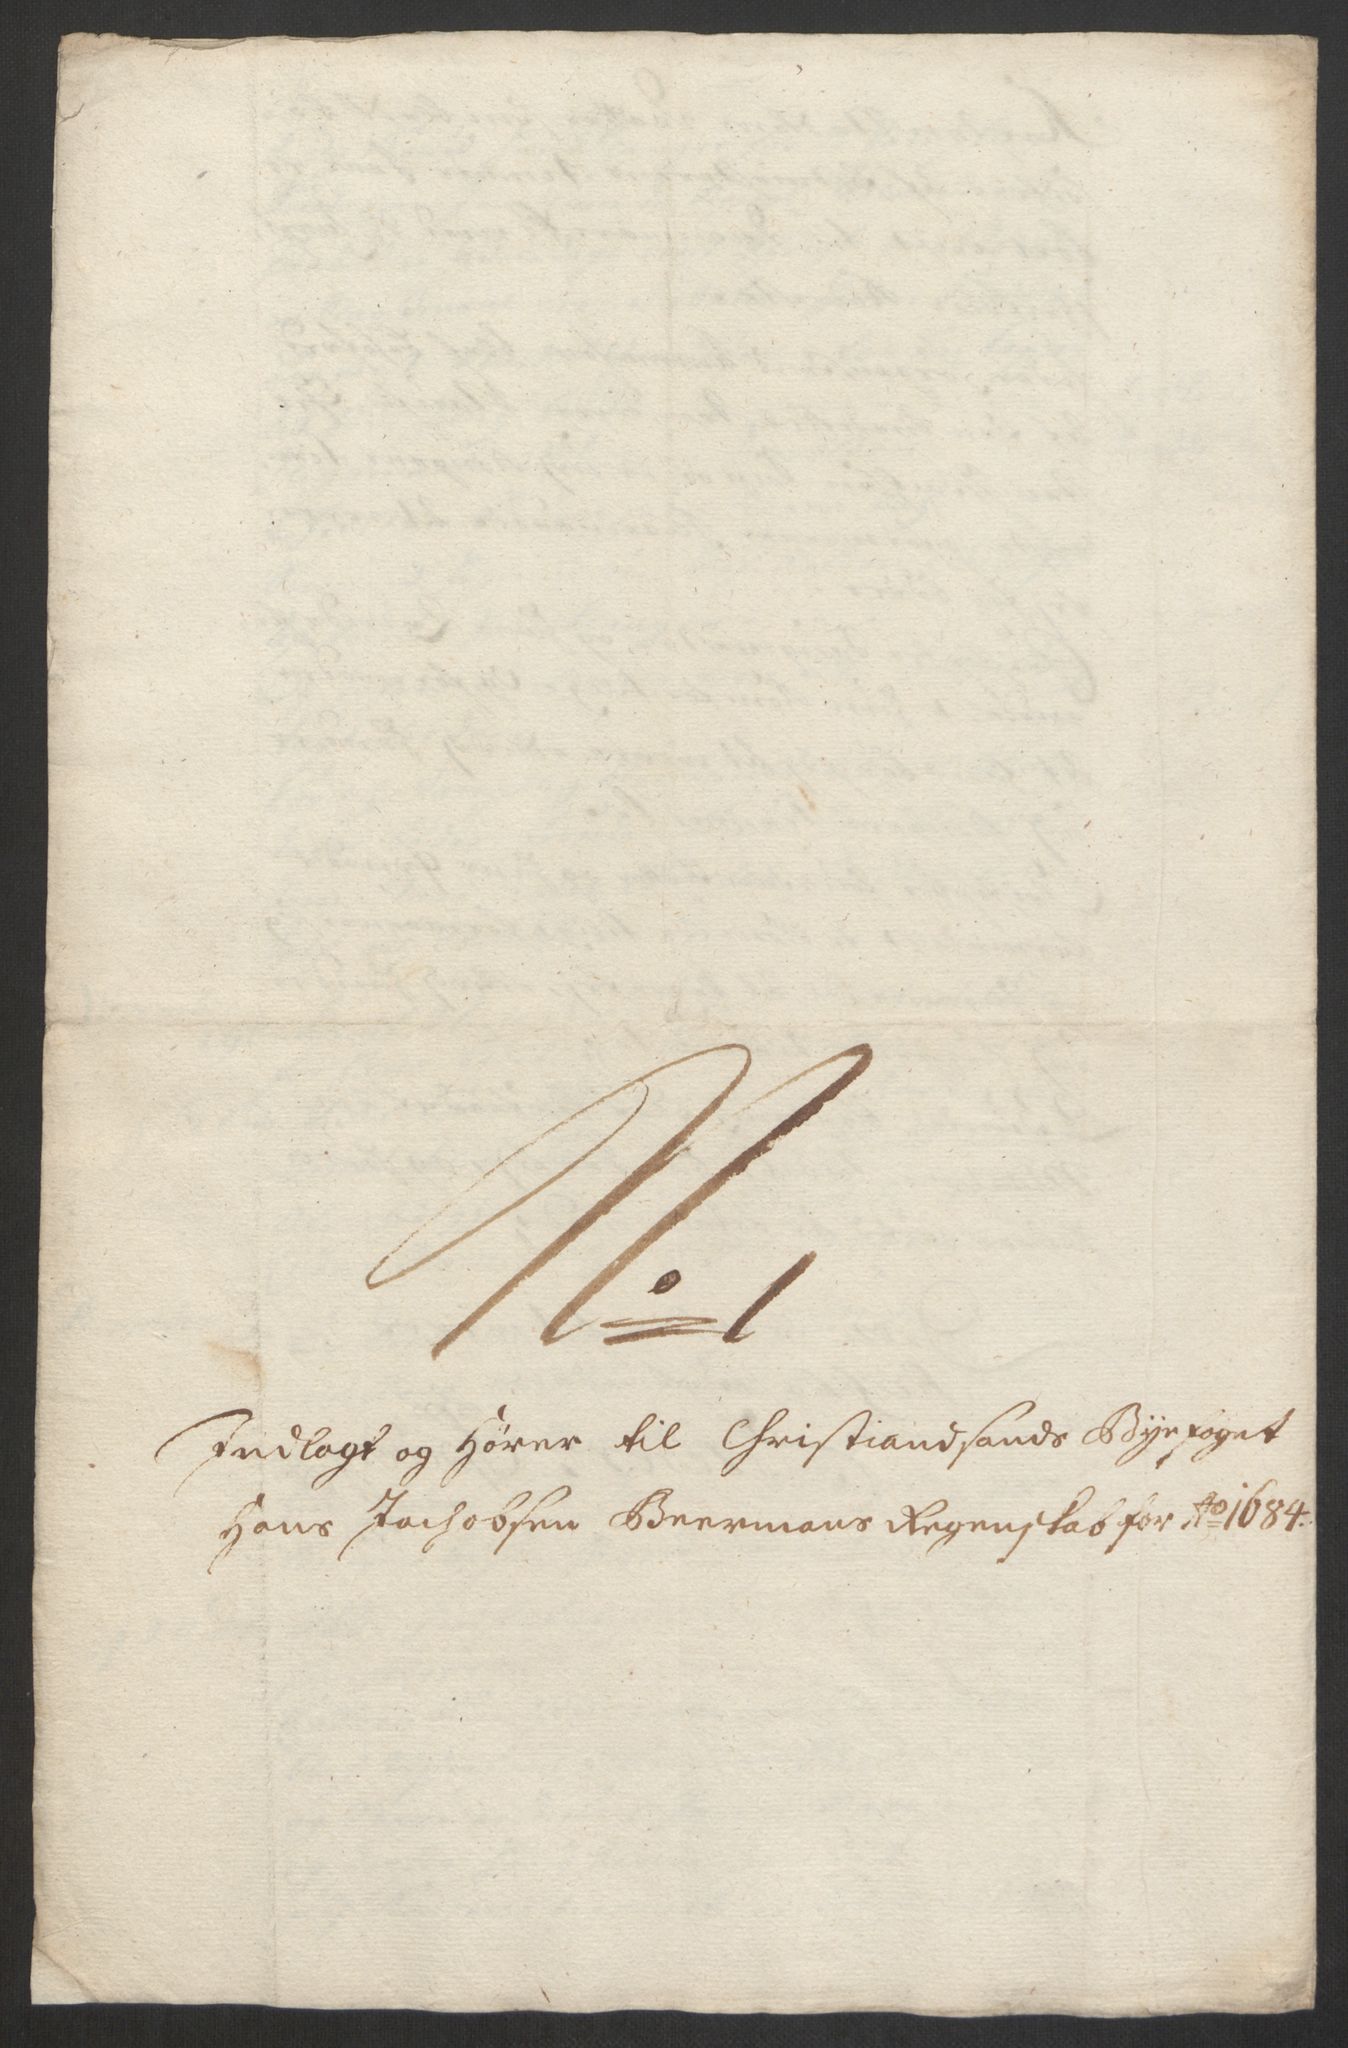 No. 1
Indlagt og Hører til Christiandsands Byefoget
Hans Jachobsen Beermans Regenskab for Ao 1684.